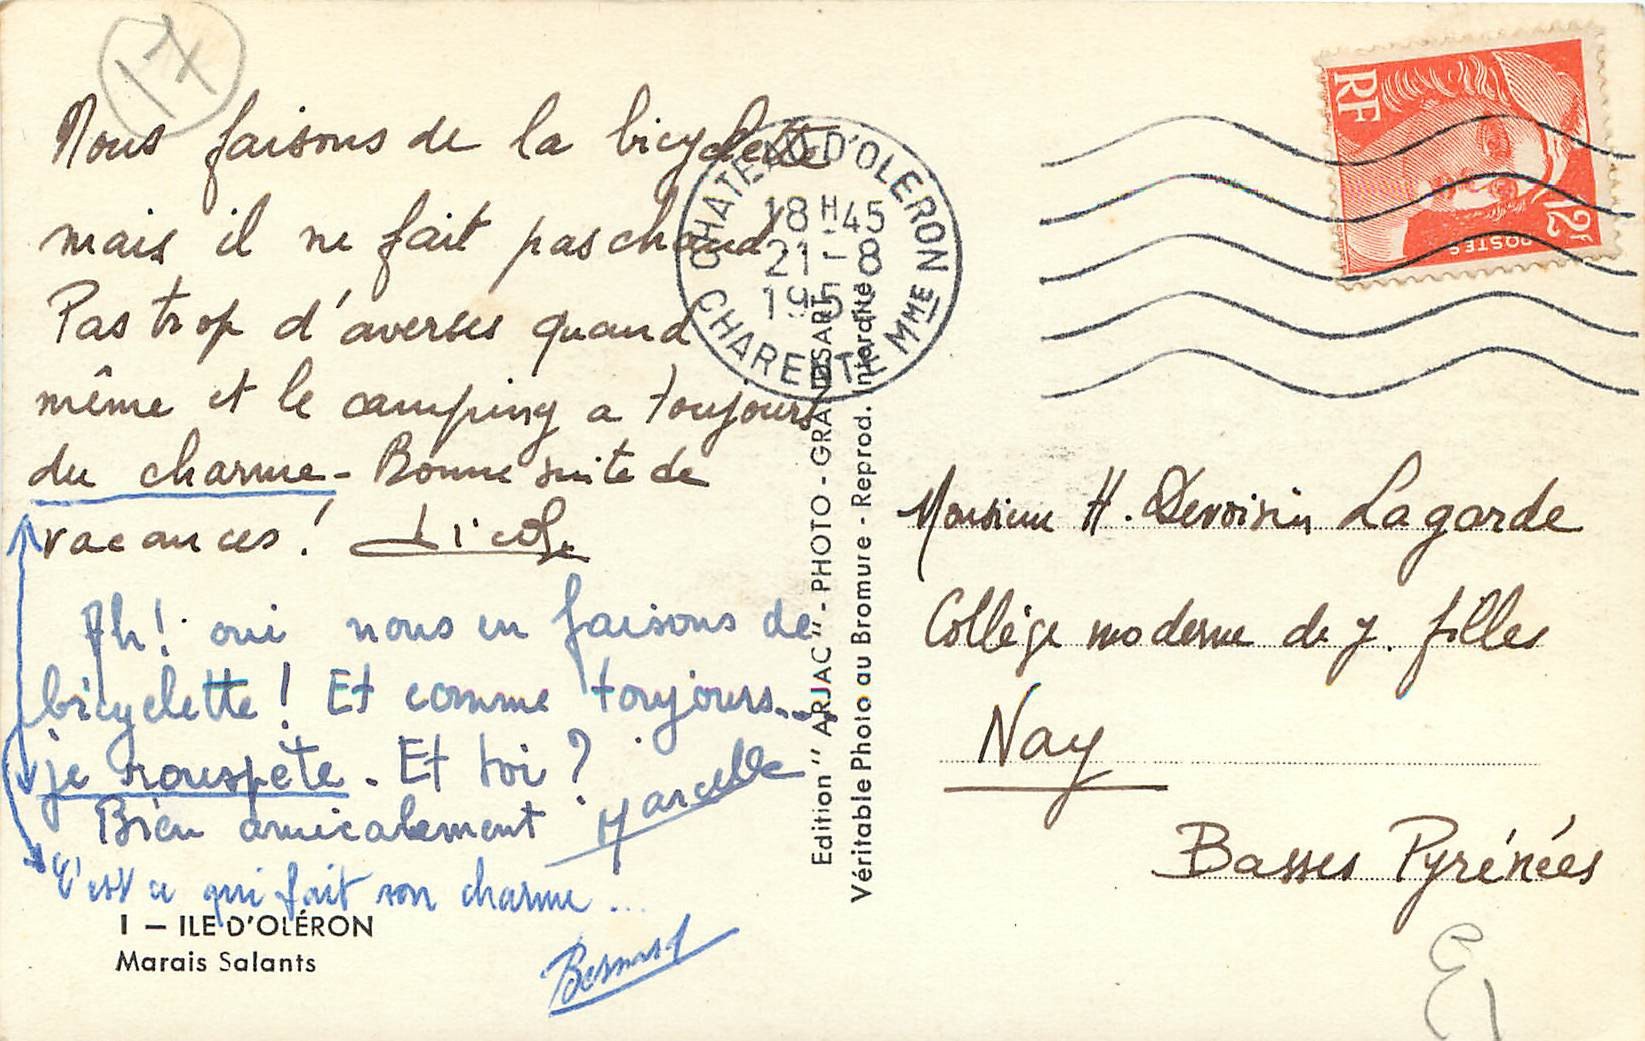 17
Nous faisons de la bicyclette
mais il ne fait pas chaud
Pas trop d'averses quand
même et le camping a toujours
du charme - Bonne suite de
vacances !
Ah ! oui nous en faisons de
bicyclette ! Et comme toujours....
je rouspète. Et toi ?
Bien amicalement Marcelle
C'est ce qui fait son charme ...
Bernard
1 — ILE D'OLÉRON
Marais Salants
Edition " ARJAC " - PHOTO - GRANDSART
Véritable Photo au Bromure - Reprod. Interdite
CHATEAU-D'OLERON
18 H 45
21 - 8
CHARENTE MME
RF
12F
POSTES
Monsieur H. Devoisin Lagarde
Collège moderne de j. filles
Nay
Basses Pyrénées